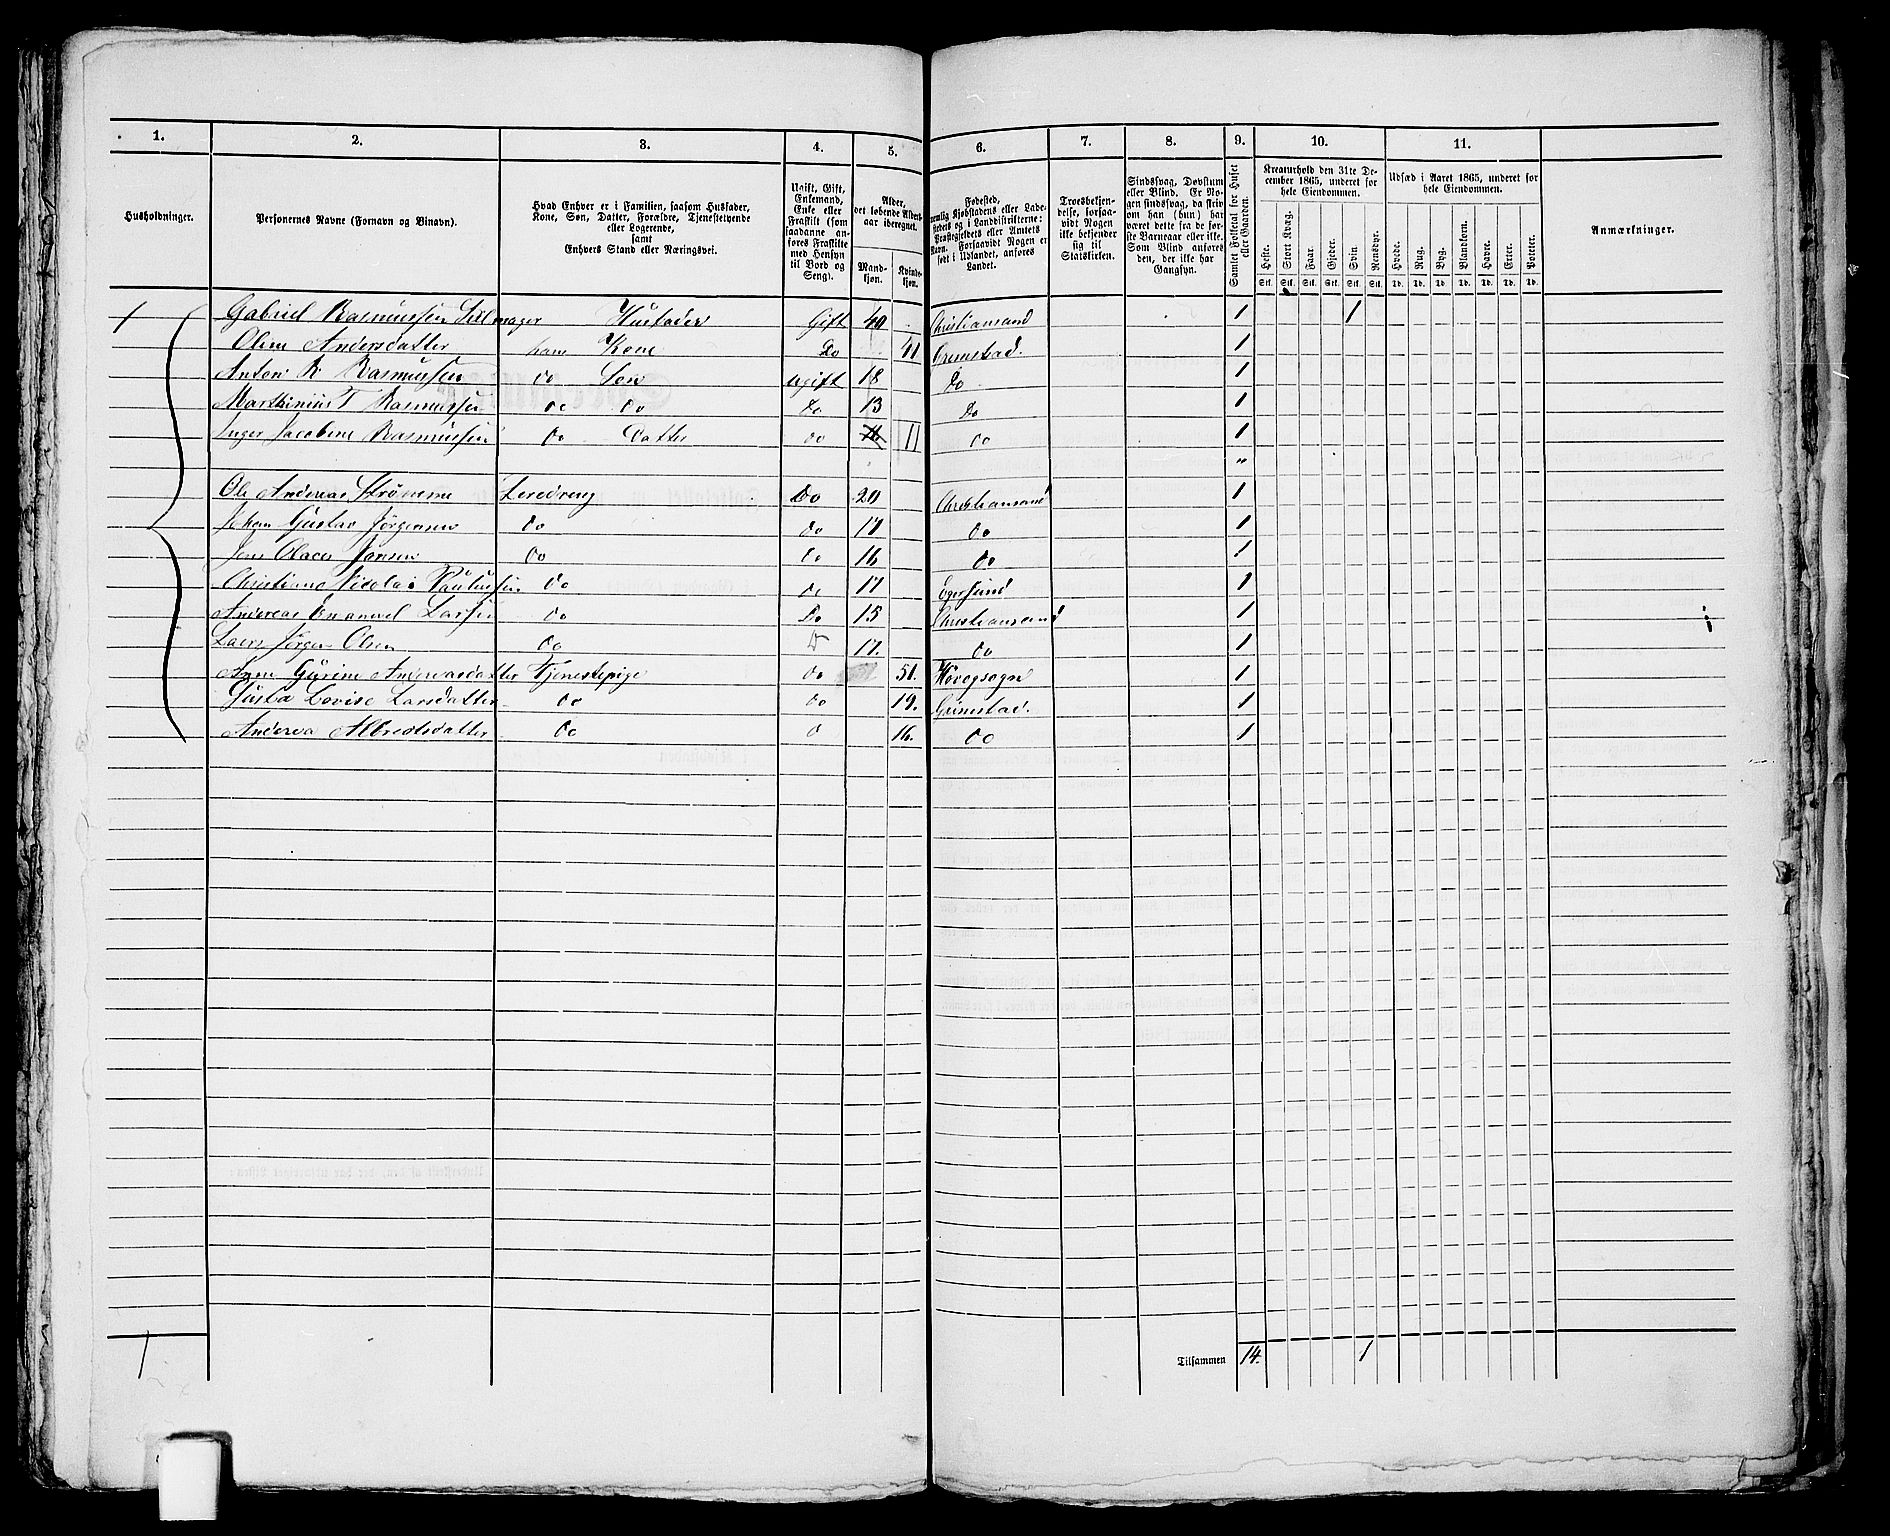 1. 2. 3. 4. 5. 6. 7. 8. 9. 10. 11.
Husholdninger.
Personernes Navne (Fornavn og Binavn).
Hvad Enhver er i Familien, saasom Husfader,
Kone, Søn, Datter, Forældre, Tjenestetyende
eller Logerende,
samt
Enhvers Stand eller Næringsvei.
Ugift, Gift,
Enkemand,
Enke eller
Fraskilt (som
saadanne an-
føres Fraskilte
med Hensyn
til Bord og
Seng).
Alder,
det løbende Alders-
aar iberegnet.
Mand-
kjøn.
Kvinde-
kjøn.
Fødested,
nemlig Kjøbstadens eller Lade-
stedets og i Landdistrikterne:
Præstegjeldets eller Amtets
Navn. Forsaavidt Nogen er
født i Udlandet, anføres
Landet.
Troesbekjen-
delse, forsaa-
vidt Nogen
ikke bekjender
sig til
Statskirken.
Sindssvag, Døvstum
eller Blind. Er No-
gen sindssvag, da skriv
om han (hun) har
været dette fra de før-
ste Barneaar eller ikke.
Som Blind anføres
den, der ikke har
Gangsyn.
Samlet Folketal for Huset
eller Gaarden.
Kreaturhold den 31te De-
cember 1865, underet for
hele Eiendommen.
Heste. Stort Kvæg. Faar. Gjeder. Svin. Rensdyr.
Stk. Stk. Stk. Stk. Stk. Stk.
Udsæd i Aaret 1865, underet for
hele Eiendommen.
Hvede. Rug. Byg. Blandkorn. Havre. Erter. Poteter.
Td. Td. Td. Td. Td. Td. Td.
Anmærkninger.
1 Gabriel Rasmussen Husfader Gift 40 Christiansand 1 1
Oline Andersdatter hans Kone Do 41 Grimstad. 1
Anton R Rasmussen do Søn ugift 18 Do 1
Marthinius T Rasmussen do do Do 13 Do 1
Inger Jacobine Rasmussen do Datter do 11 do 1
"
Ole Andreas Strømme Leredreng Do 20 Christiansand 1
Johan Gustav Jørgensen do do 17 do 1
Jens Olaves Jensen do do 16 do 1
Christiane Nicolai Paulussen do do 17 Egersund 1
Andreas Emanuel Larsen do Do 15 Christiansand 1
Lars Jørgen Olsen do D 17. do 1
Anne Gurine Andreasdatter Tjenestepige do 51. Høvogsogn 1
Gusta Lovise Larsdatter do do 19. Grimstad. 1
Andrea Albretsdatter do 16. do 1
1 Tilsammen 14. 1